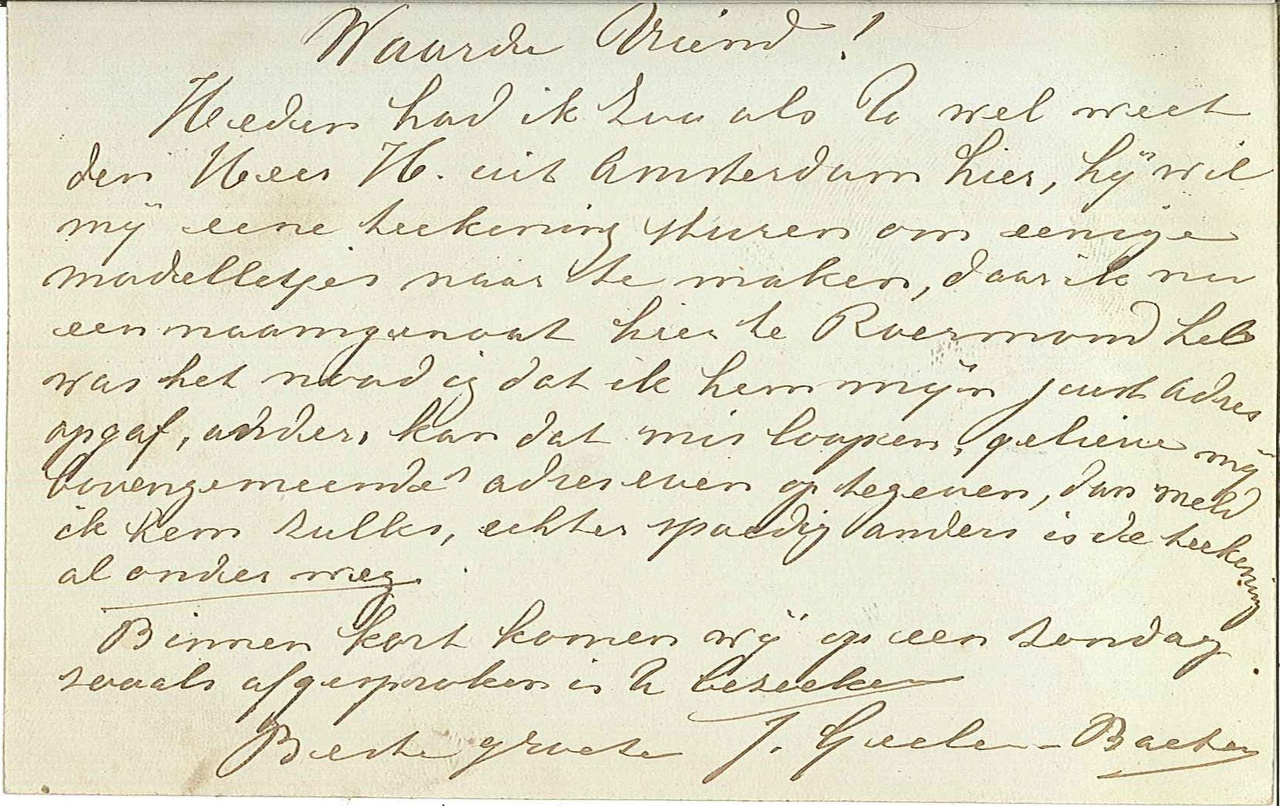 Waarde Vriend!
Heden had ik zoo als U wel weet
den Heer H. uit Amsterdam hier, hij wil
mij eene teekening sturen om eenige
modelletjes naar te maken, daar ik nu
een naamgenoot hier te Roermond heb
was het noodig dat ik hem mijn juist adres
opgaf, anders kan dat mis loopen, gelieve mij
bovengemeende adres even op tegeven, dan meld
ik hem zulks, echter spoedig anders is de teekening
al onder weg.
Binnen kort komen wij op een zondag
zooals afgesproken is U bezoeken
Beste groete J. Geelen-Baeten